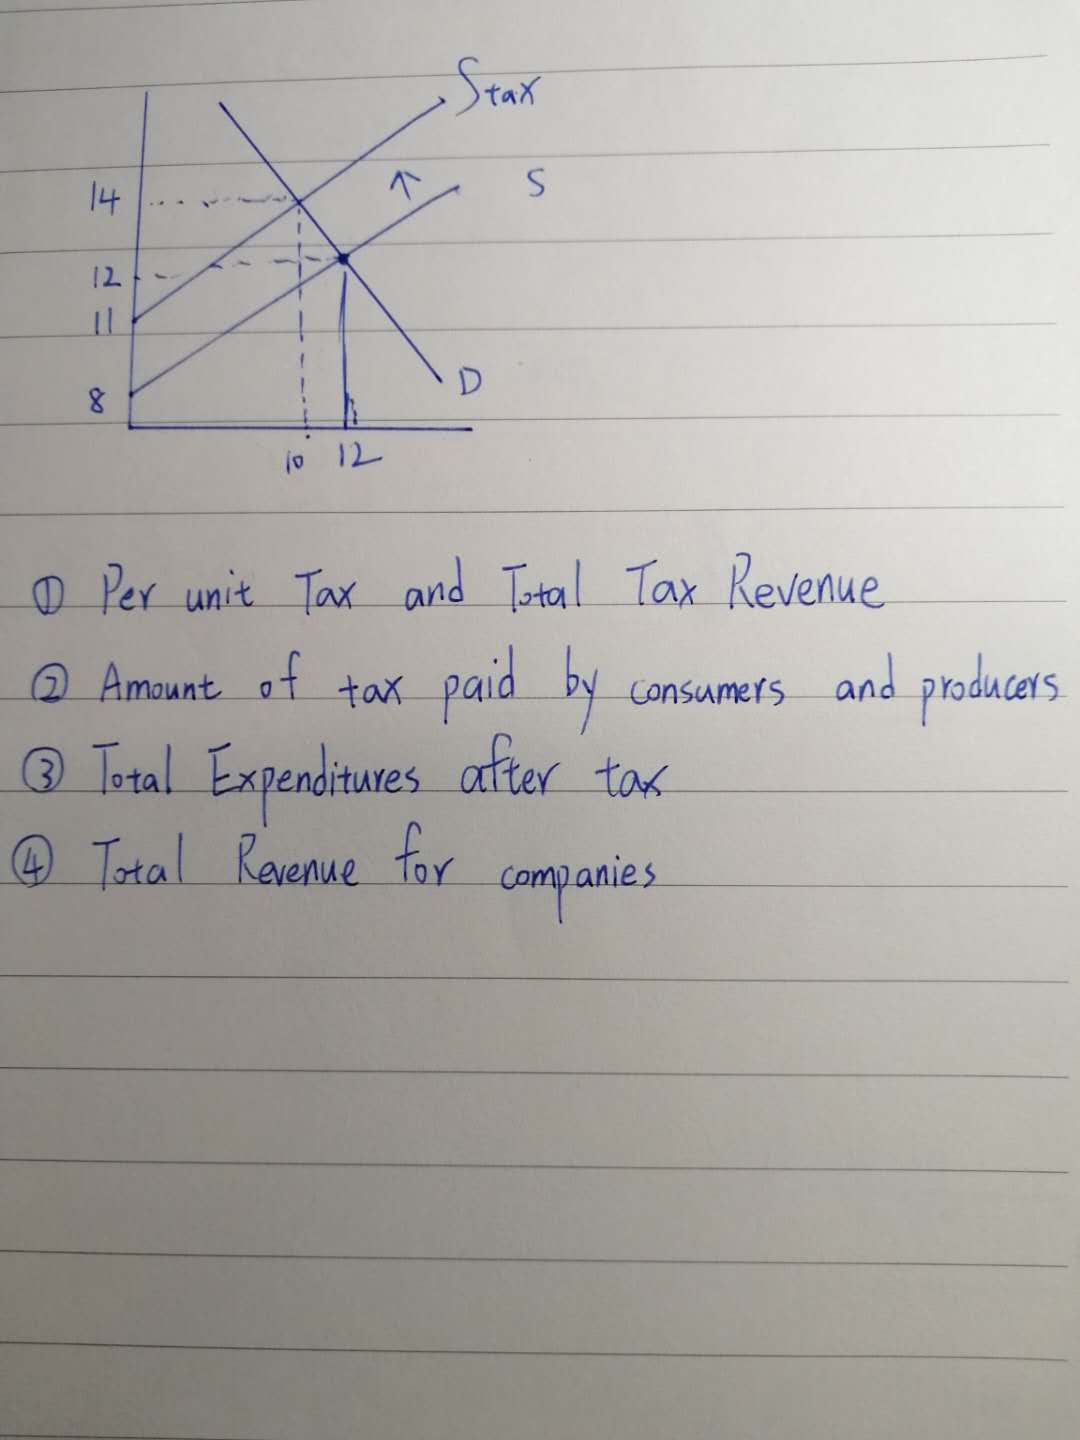 Stax
14
S
12
11
8
D
10 12
① Per unit Tax and Total Tax Revenue
② Amount of tax paid by consumers and producers
③ Total Expenditures after tax
④ Total Revenue for companies